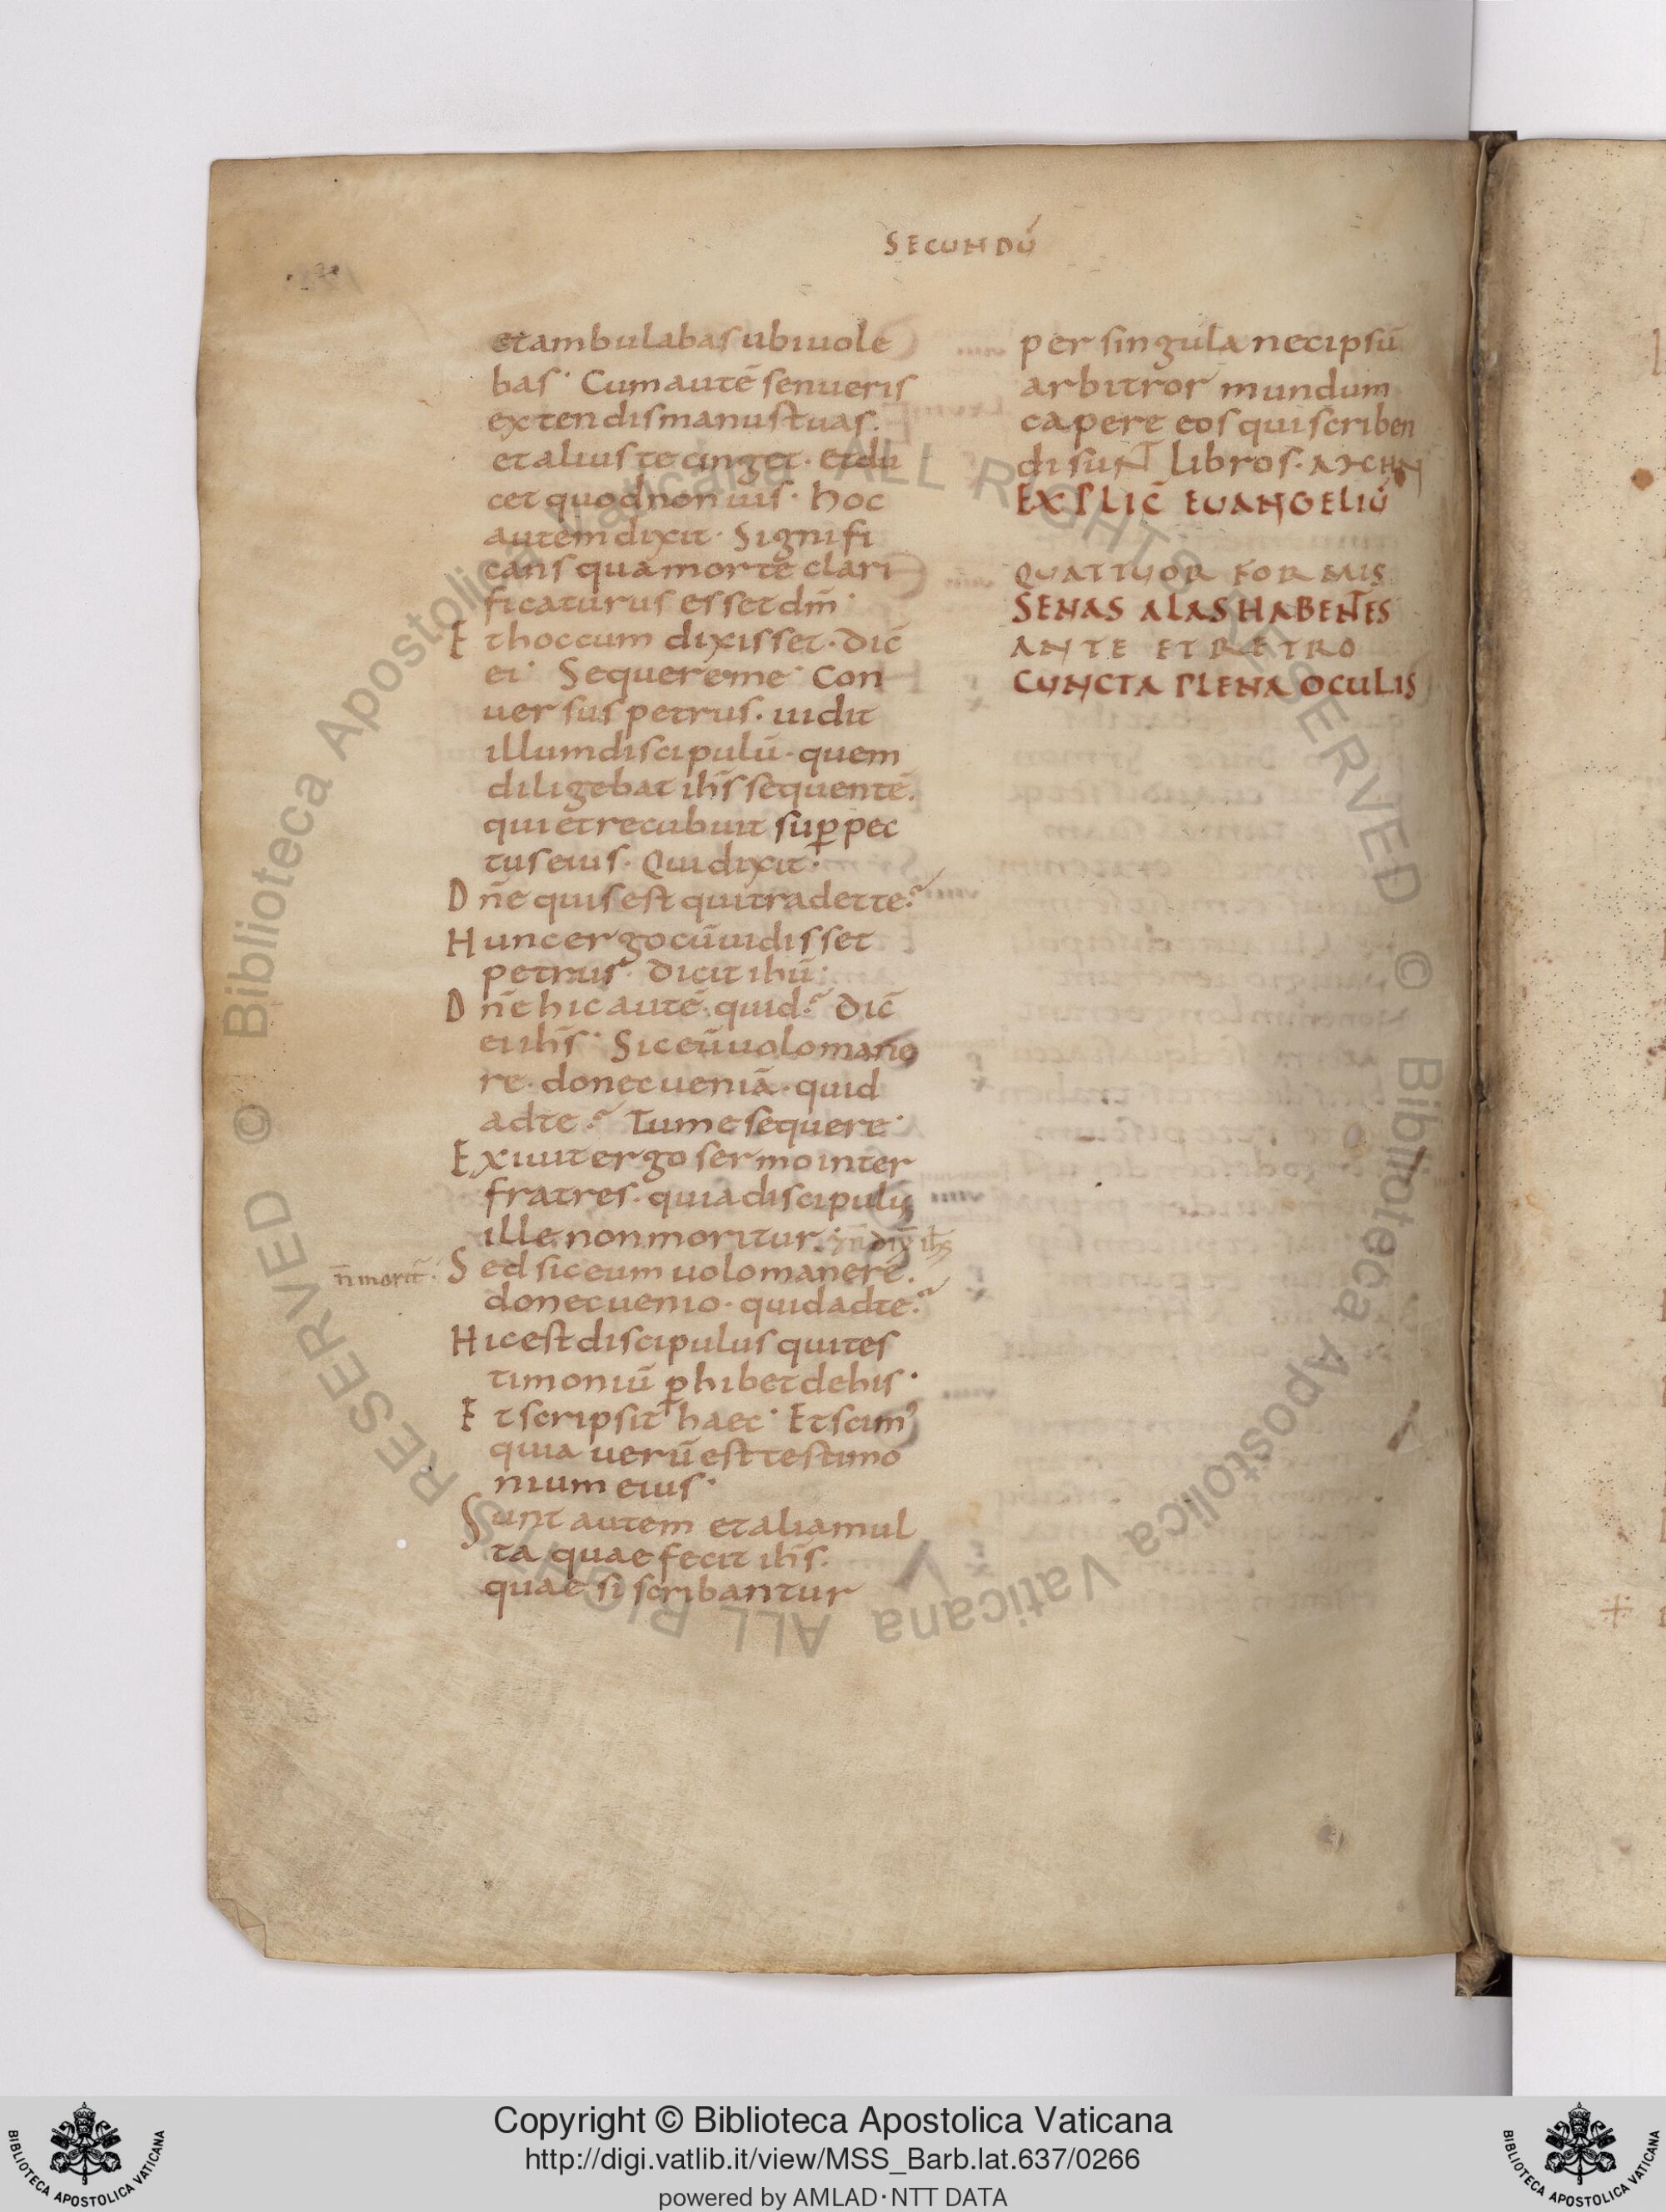 SECUNDŪ
et ambulabas ubi uole
bas· Cum autē senueris
extendis manus tuas.
et alius te cinget· et du
cet quod non uis· hoc
autem dixit· Signifi
cans qua morte clari
ficaturus esset dm̄·
Et hoc cum dixisset· dic̄
ei· Sequere me· Con
uersus petrus· uidit
illum discipulū· quem
diligebat ihs̄ sequentē.
qui et recubuit suꝑ pec
tus eius· Qui dixit·
Dn̄e quis est qui tradet te?
Hunc ergo cū uidisset
petrus· dicit ihū:
Dn̄e hic autē· quid? dic̄
ei ihs̄· Sic eū uolo mane
re· donec ueniā· quid
ad te? Tu me sequere·
Exiuit ergo sermo inter
fratres· quia discipulus
ille non moritur·
n̄ morit̄·
Sed sic eum uolo manere.
donec uenio· quid ad te?
Hic est discipulus qui tes
timoniū ꝑhibet de his·
Et scripsit haec· Et scimꝰ
quia uerū est testimo
nium eius·
Sunt autem et alia mul
ta quae fecit ihs̄.
quae si scribantur
per singula nec ipsū
arbitror mundum
capere eos qui scriben
di sunt libros·
EXPLIC̄ EUANGELIŪ
QUATTUOR FORMIS
SENAS ALAS HABENTES
ANTE ET RETRO
CUNCTA PLENA OCULIS
© Biblioteca Apostolica Vaticana ALL RIGHTS RESERVED © Biblioteca Apostolica Vaticana ALL RIGHTS RESERVED
BIBLIOTECA APOSTOLICA VATICANA
Copyright © Biblioteca Apostolica Vaticana
http://digi.vatlib.it/view/MSS_Barb.lat.637/0266
powered by AMLAD·NTT DATA
BIBLIOTECA APOSTOLICA VATICANA